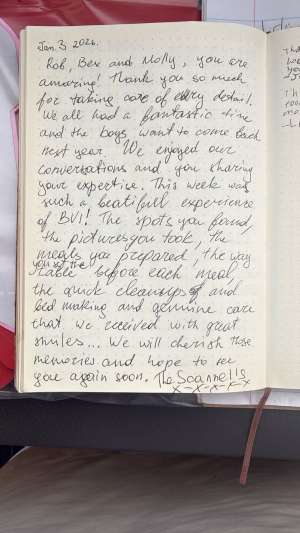 Jan. 3, 2026.
Rob, Bex and Molly, you are
amazing! Thank you so much
for taking care of every detail.
We all had a fantastic time
and the boys want to come back
next year. We enjoyed our
conversations and you sharing
your expertice. This week was
such a beatifull experience
of BVI! The spots you found,
the pictures you took, the
meals you prepared, the way
you set the
table before each meal,
the quick cleanups and
bed making and genuine care
that we received with great
smiles... We will cherish these
memories and hope to see
you again soon. The Scannells
x-x-x-x-x